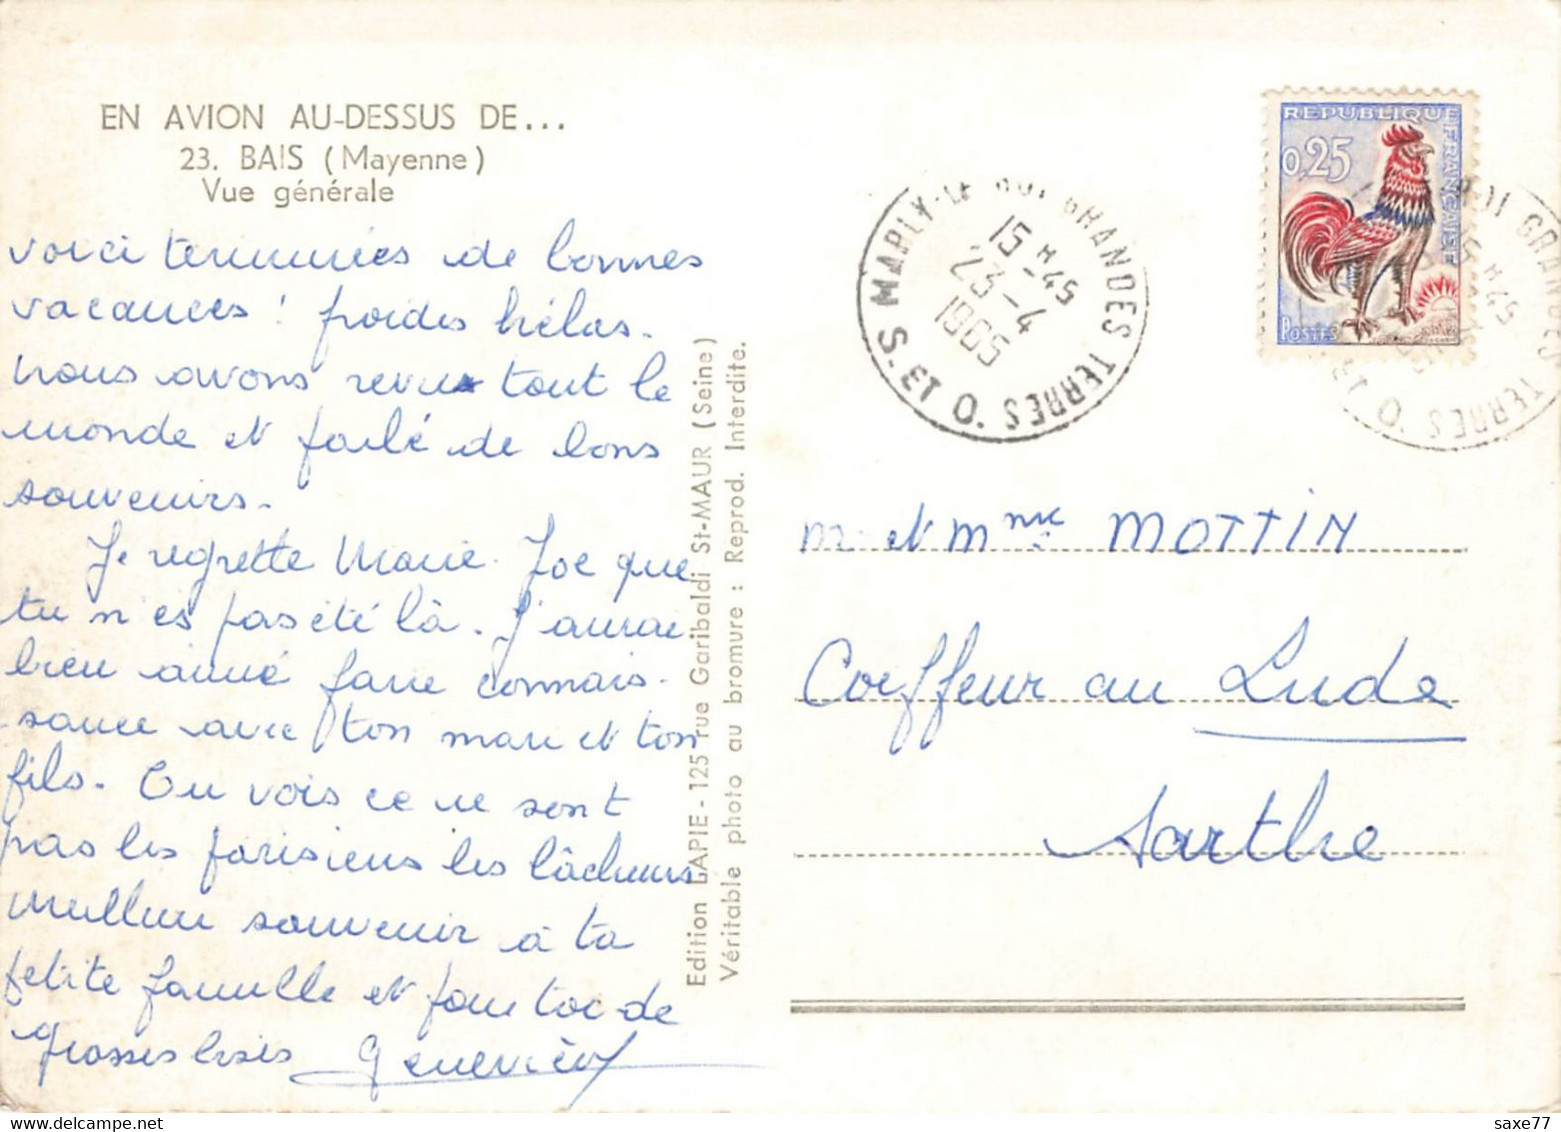 EN AVION AU-DESSUS DE...
23. BAIS (Mayenne)
Vue générale
voici terminées de bonnes
vacances ! froides hélas.
nous avons revu tout le
monde et parlé de bons
souvenirs.
Je regrette Marie. Joe que
tu n'es pas été là. J'aurai
bien aimé faire connais-
sance avec ton mari et ton
fils. Tu vois ce ne sont
pas les parisiens les lâcheurs
meilleur souvenir à ta
petite famille et pour toi de
grosses bises Geneviève
Edition LAPIE - 125 rue Garibaldi St-MAUR (Seine)
Véritable photo au bromure : Reprod. Interdite.
MARLY-LE-ROI GRANDES TERRES
S. ET O.
15 H 45
23-4
1965
REPUBLIQUE FRANÇAISE
0,25
POSTES
ROI GRANDES TERRES
ET O.
45
m. et mme MOTTIN
Coiffeur au Lude
Sarthe
saxe77